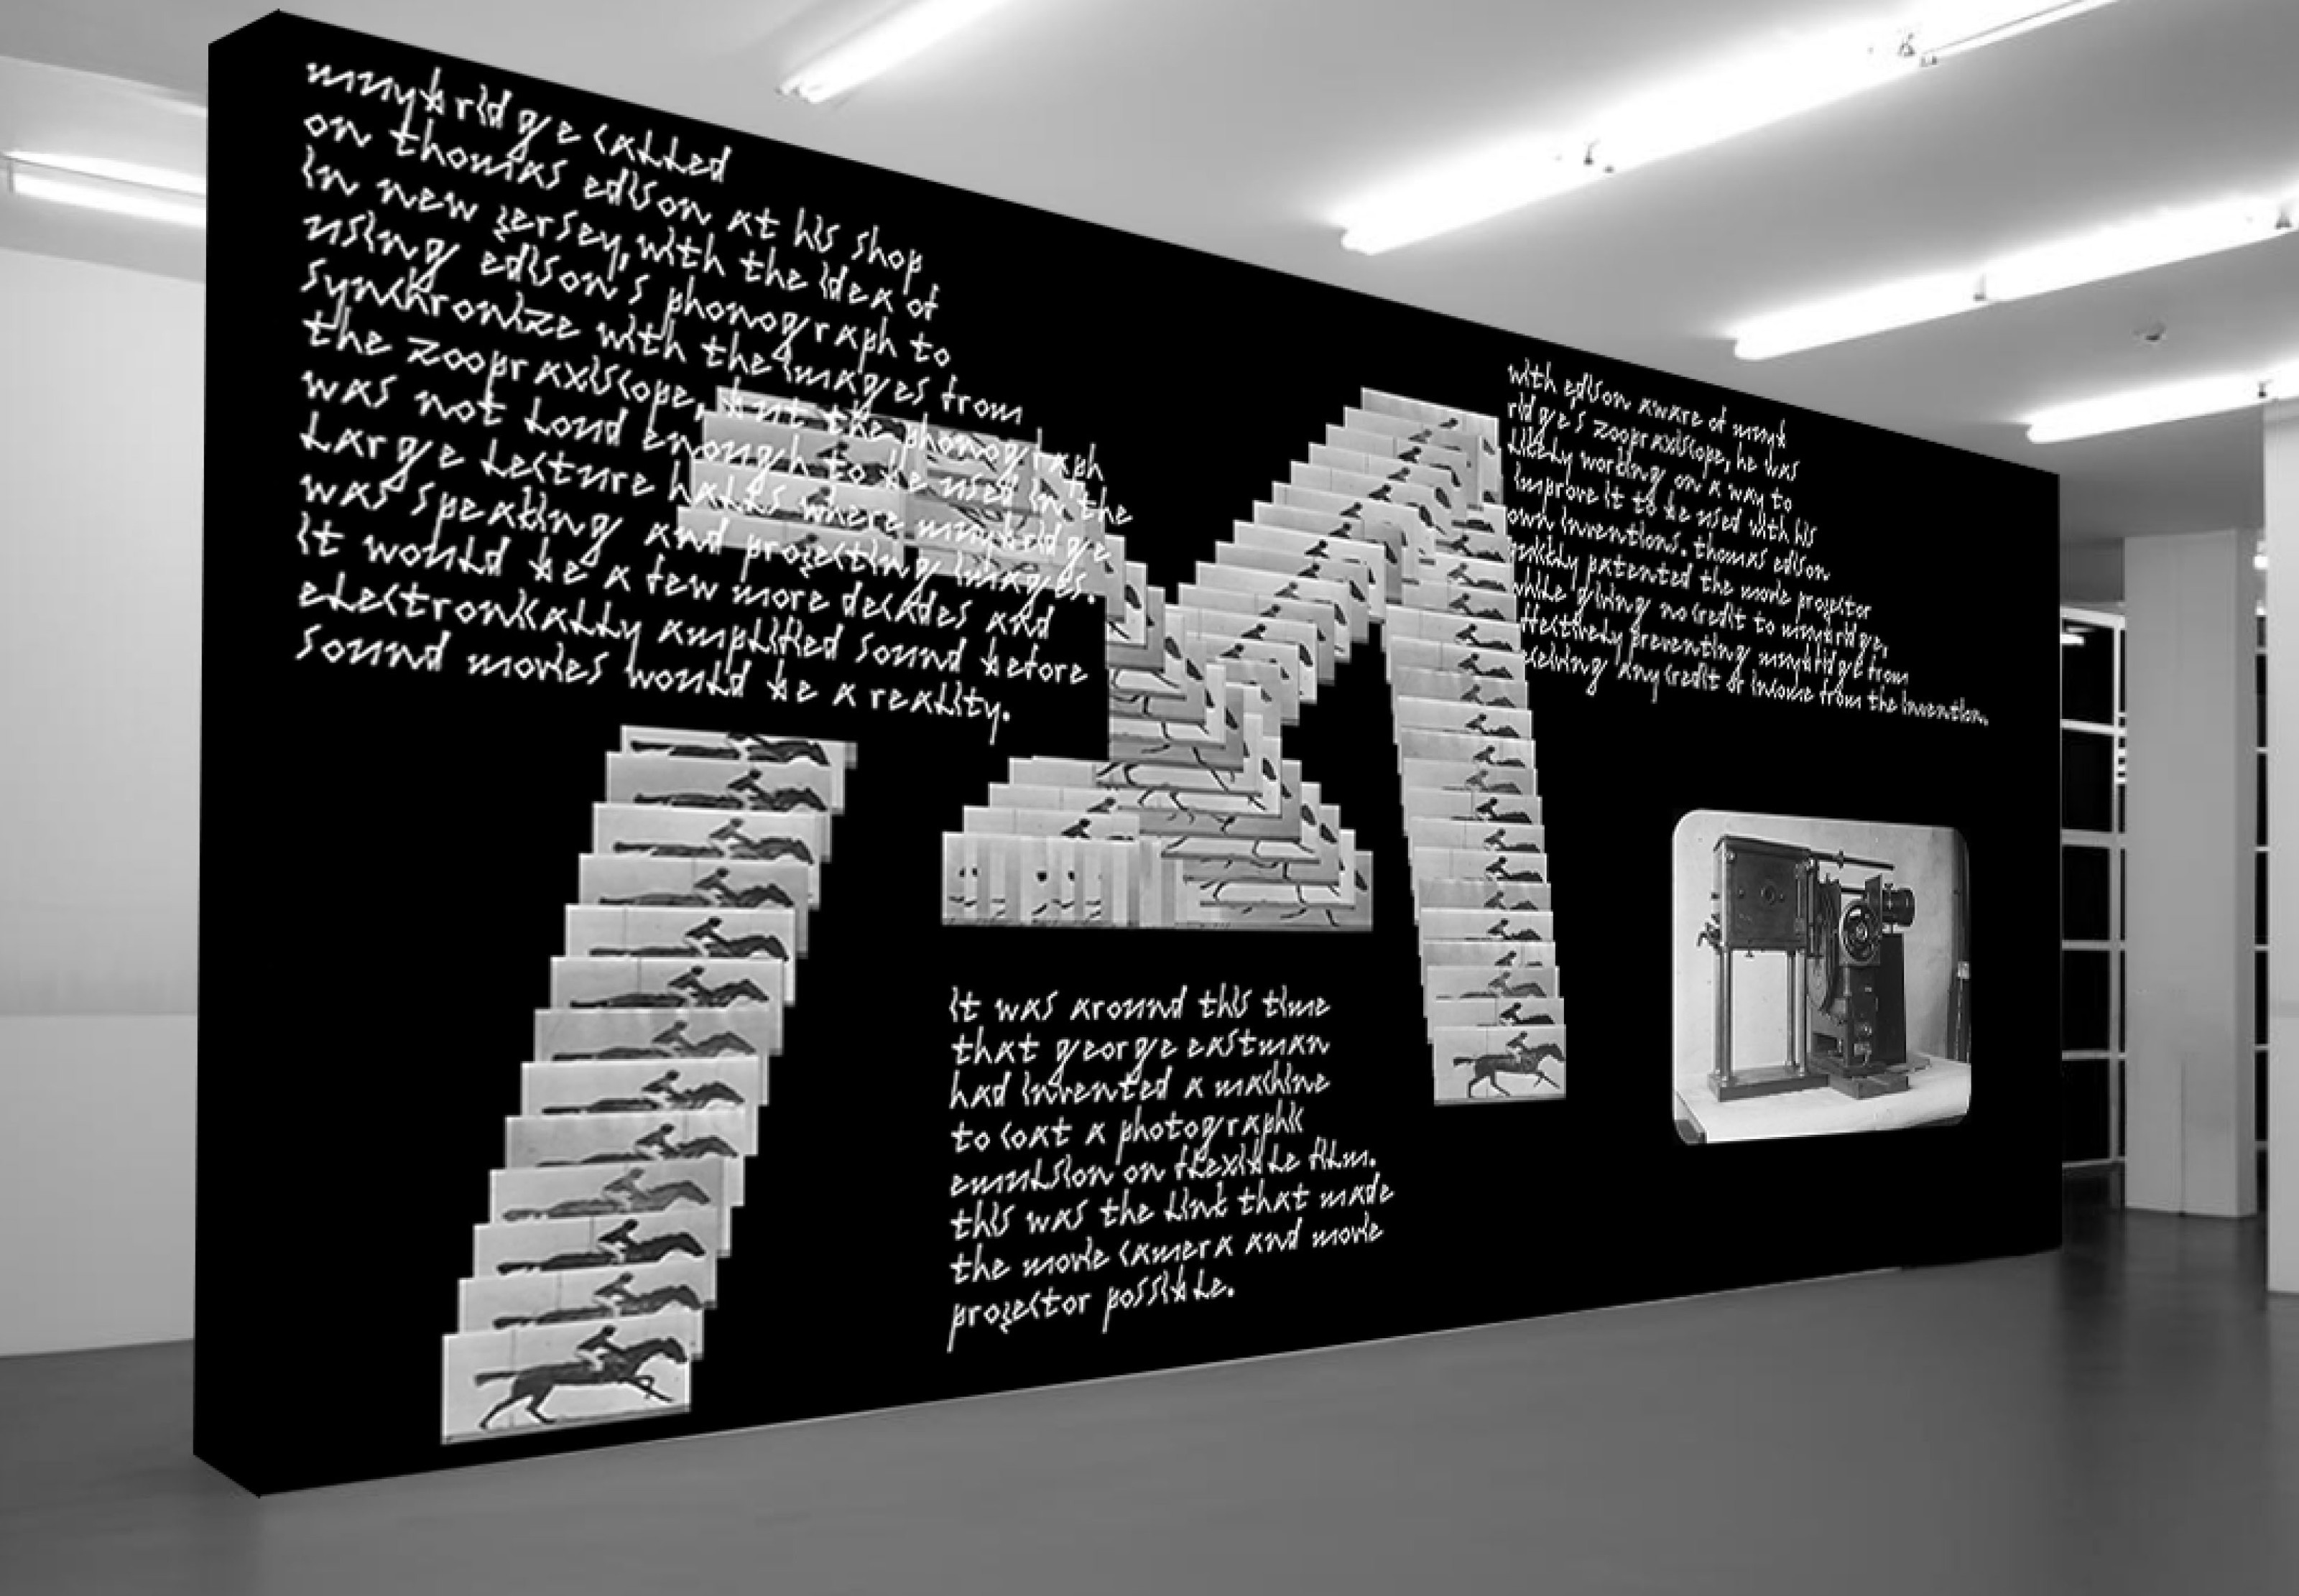 muybridge called
on thomas edison at his shop
in new jersey, with the idea of
using edison's phonograph to
synchronize with the images from
the zoopraxiscope, but the phonograph
was not loud enough to be used in the
large lecture halls where muybridge
was speaking and projecting images.
it would be a few more decades and
electronically amplified sound before
sound movies would be a reality.
it was around this time
that george eastman
had invented a machine
to coat a photographic
emulsion on flexible film.
this was the link that made
the movie camera and movie
projector possible.
with edison aware of muyb
ridge's zoopraxiscope, he was
likely working on a way to
improve it to be used with his
own inventions. thomas edison
quickly patented the movie projector
while giving no credit to muybridge,
effectively preventing muybridge from
receiving any credit or income from the invention.